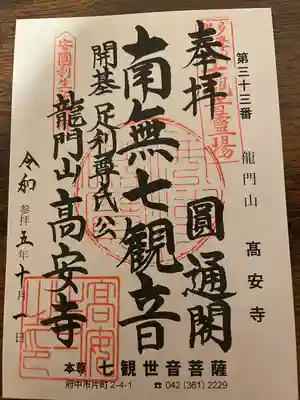 第三十三番 龍門山 高安寺
奉拝
圓通閣
南無七観音
開基 足利尊氏公
龍門山 高安寺
令和五年十月一日
参拝
安國利生
高安寺之印
本尊 七観世音菩薩
府中市片町2-4-1 ☎042(361)2229